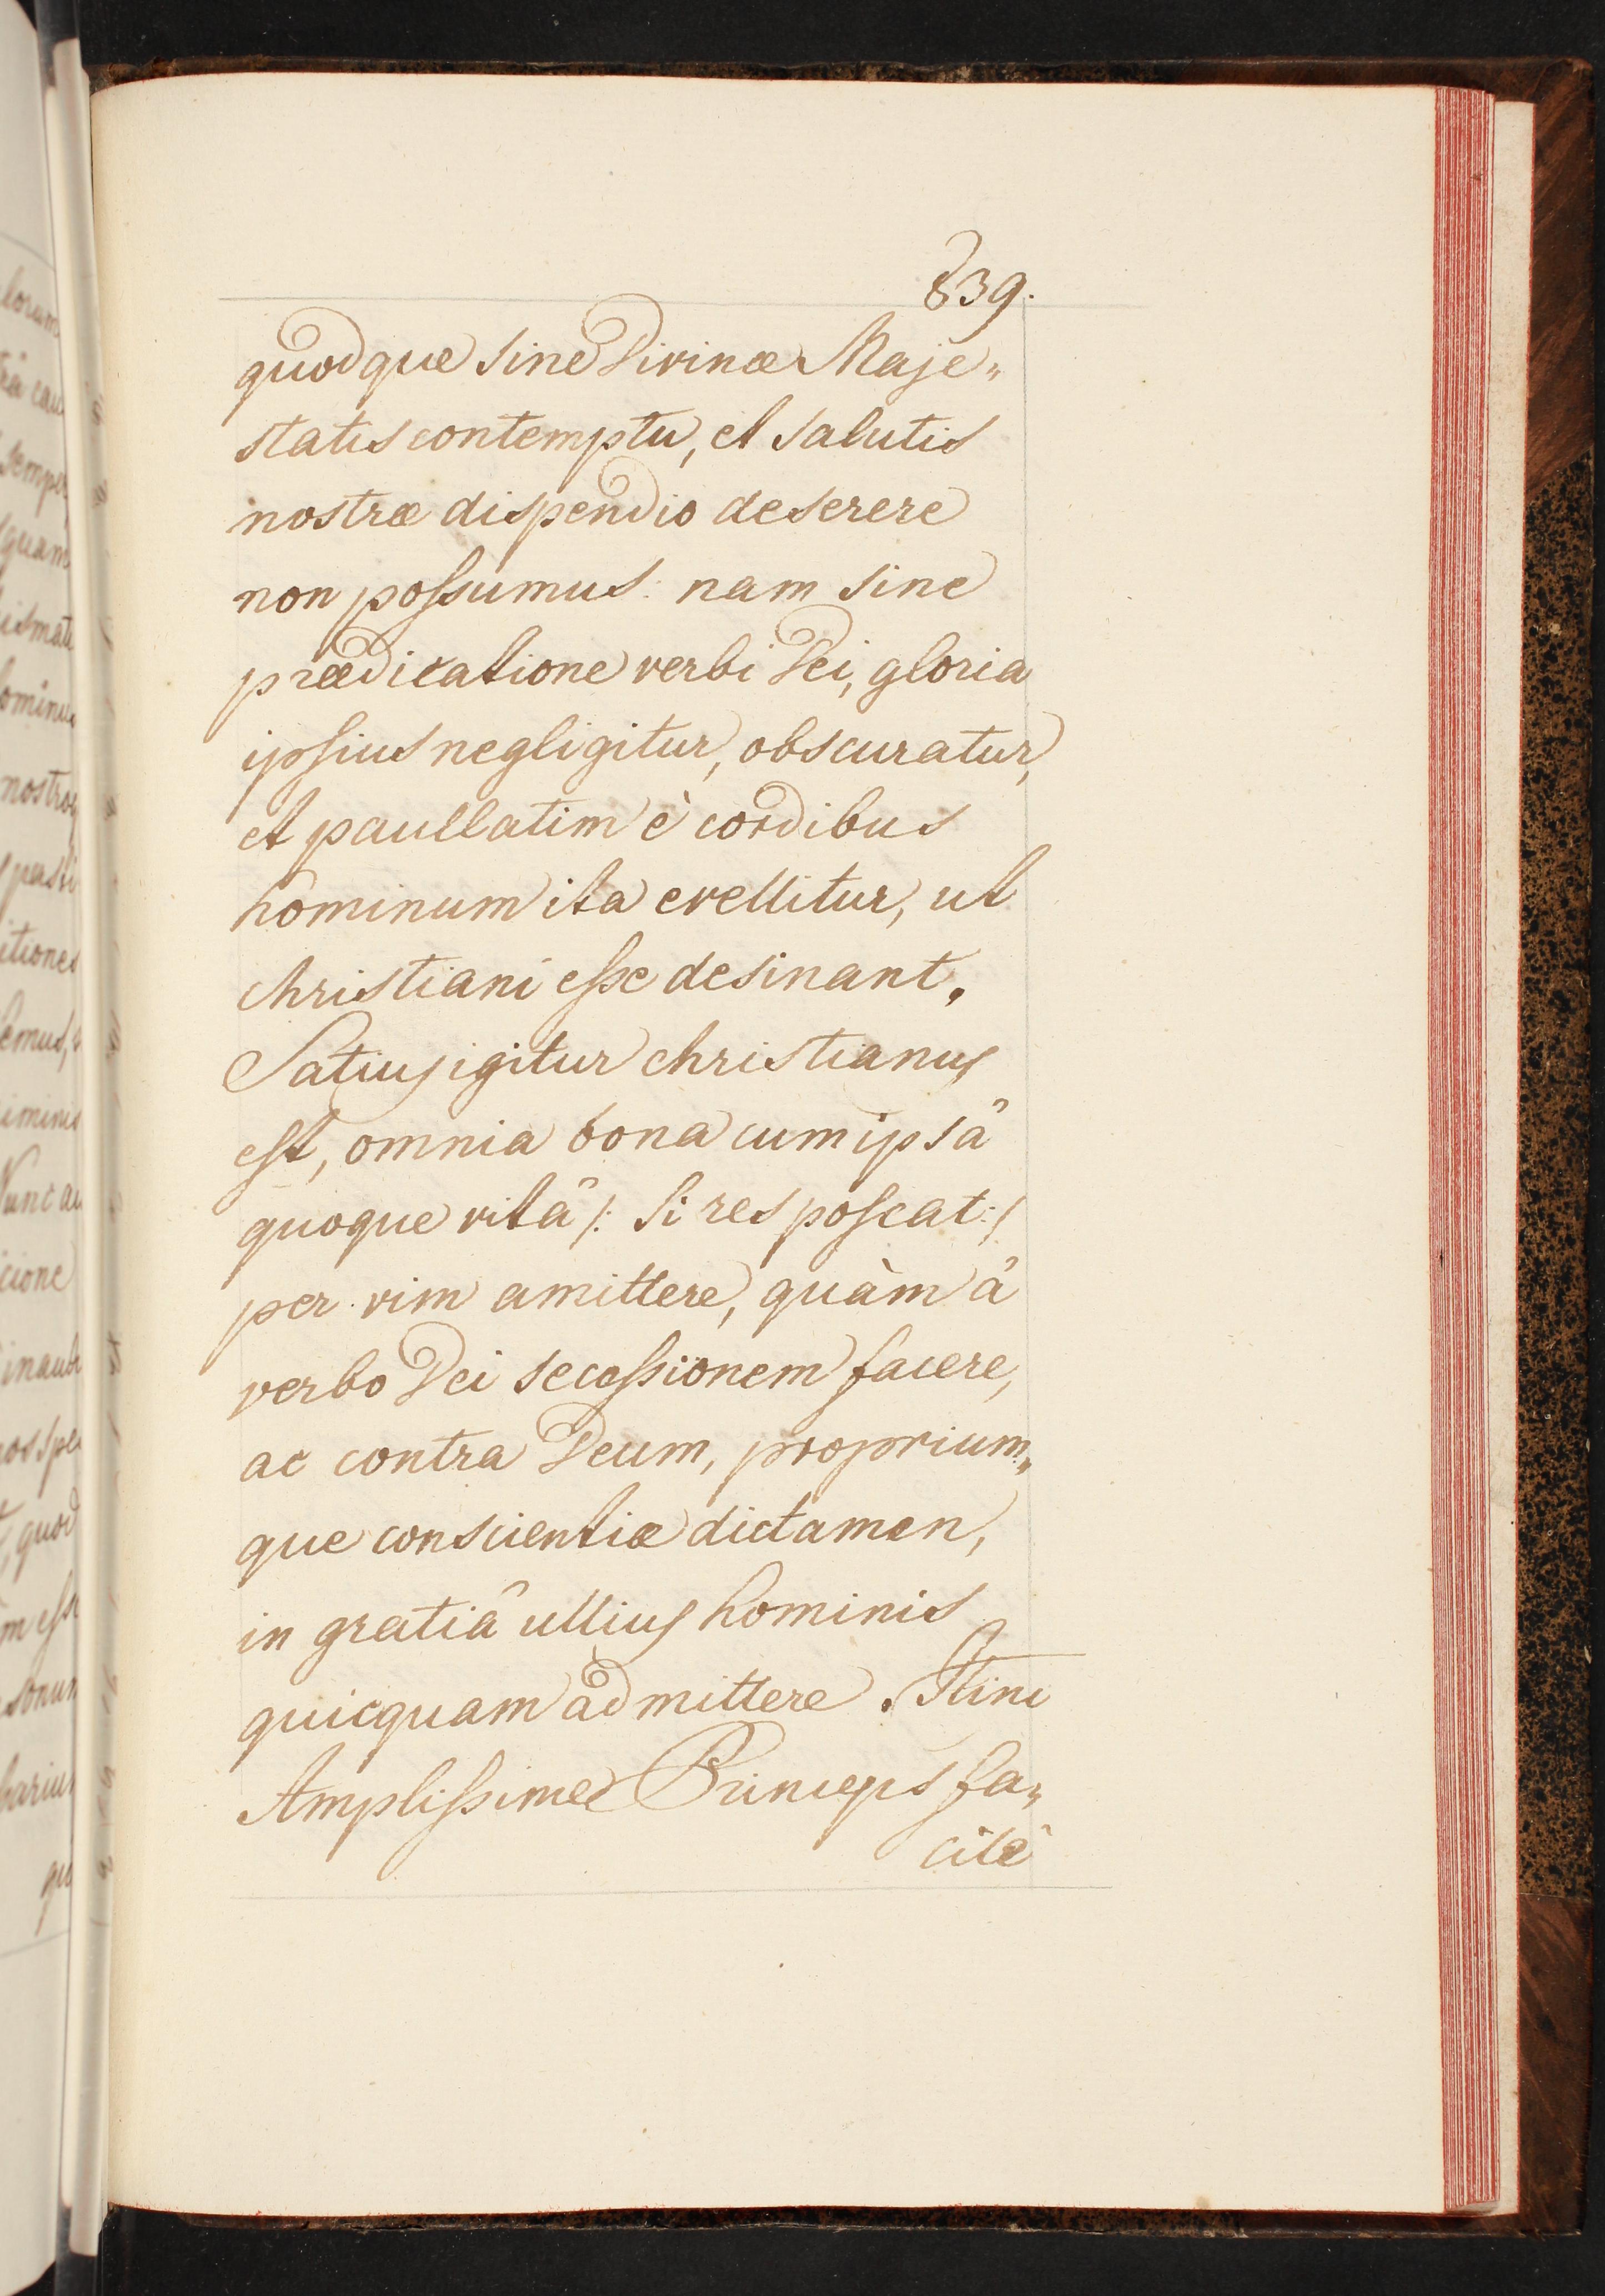 839.
quodque sine Divinæ Maje„
status contemptu, et salutis
nostræ dispendio deserere
non possumus: nam sine
prædicatione verbi Dei, gloria
ipsius negligitur, obscuratur,
et paullatim è cordibus
hominum ita evellitur, ut
christiani esse desinant.
Satius igitur christianus
est, omnia bona cum ipsâ
quoque vitâ /: si res poscat :/
per vim amittere, quàm à
verbo Dei secessionem facere,
ac contra Deum, proprium„
que conscientiæ dictamen,
in gratiâ ullius hominis
quicquam admittere. Hinc
Amplissime Princeps fa„
cilè